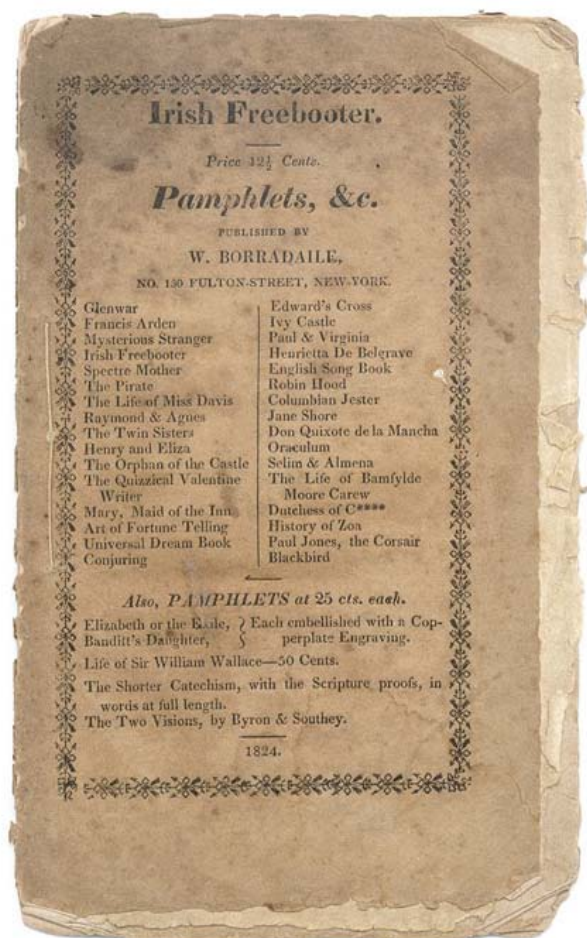 Irish Freebooter.
Price 12½ Cents.
Pamphlets, &c.
PUBLISHED BY
W. BORRADAILE,
NO. 130 FULTON-STREET, NEW-YORK.
Glenwar
Francis Arden
Mysterious Stranger
Irish Freebooter
Spectre Mother
The Pirate
The Life of Miss Davis
Raymond & Agnes
The Twin Sisters
Henry and Eliza
The Orphan of the Castle
The Quizzical Valentine
Writer
Mary, Maid of the Inn
Art of Fortune Telling
Universal Dream Book
Conjuring
Edward's Cross
Ivy Castle
Paul & Virginia
Henrietta De Belgrave
English Song Book
Robin Hood
Columbian Jester
Jane Shore
Don Quixote de la Mancha
Oraculum
Selim & Almena
The Life of Bamfylde
Moore Carew
Dutchess of C****
History of Zoa
Paul Jones, the Corsair
Blackbird
Also, PAMPHLETS at 25 cts. each.
Elizabeth or the Exile, } Each embellished with a Cop-
Banditt's Daughter, } perplate Engraving.
Life of Sir William Wallace—50 Cents.
The Shorter Catechism, with the Scripture proofs, in
words at full length.
The Two Visions, by Byron & Southey.
1824.